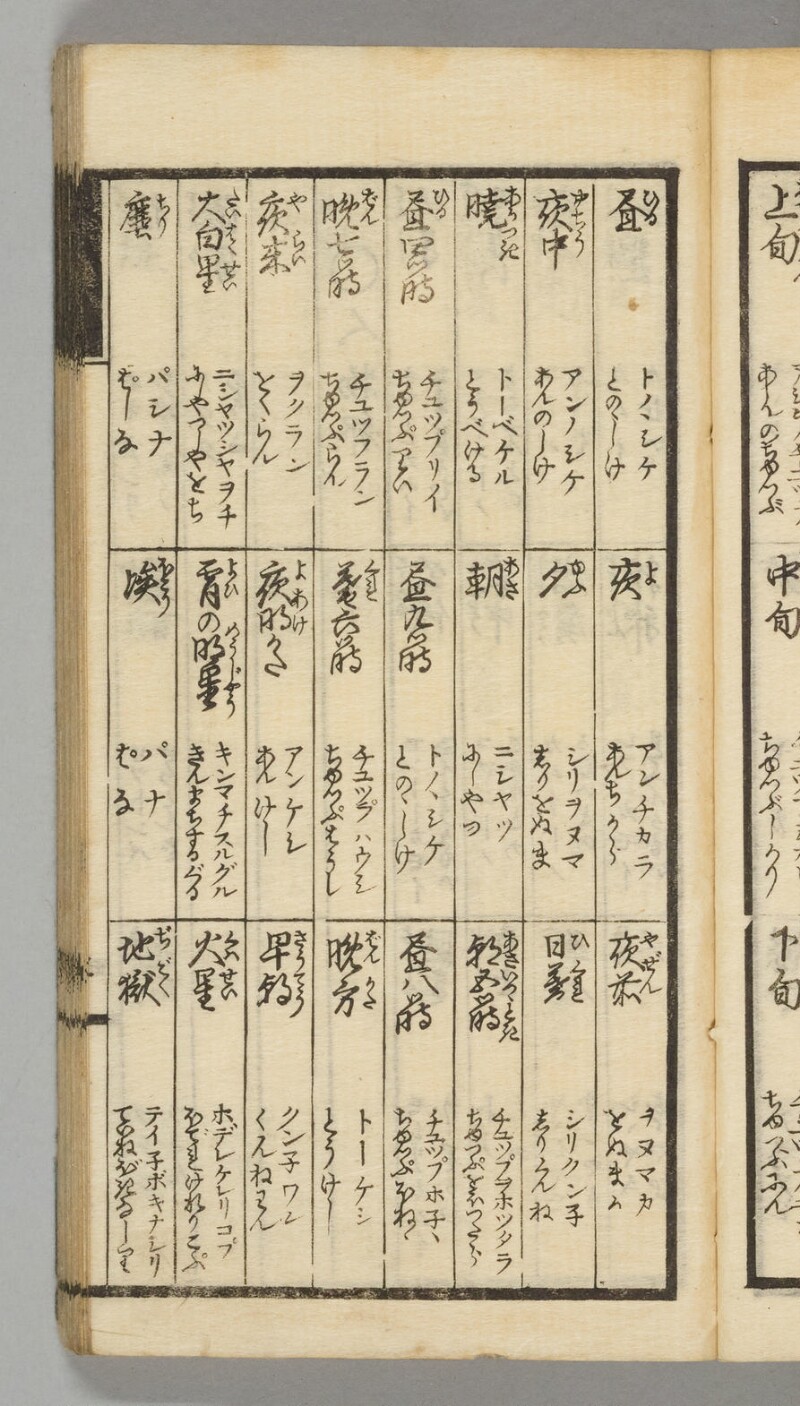 昼 ひる
トノヽシケ
とのゝしけ
夜 よ
アンチカラ
あんちから
夜前 やぜん
ヲヌマカ
をぬまか
夜中 やちう
アンノシケ
あんのしけ
夕 ゆふ
シリヲヌマ
しりをぬま
日暮 ひくれ
シリクン子
しりくんね
暁 あかつき
トーベケル
とうべける
朝 あさ
ニシヤツ
にしやつ
朝五ツ時
チユツプヲホツタラ
昼四ツ時 ひる
チユツプリイ
ちゆつぷりい
昼九ツ時
トノヽシケ
とのゝしけ
昼八ツ時
チユツプホ子ヽ
ちゆつぷほねゝ
晩七ツ時 ばん
チユツフラン
ちゆつぷらん
暮六ツ時 くれ
チユツプハウシ
ちゆつぷはうし
晩方 ばんかた
トーケシ
とうけし
夜来 やらい
ヲクラン
をくらん
夜明かた よあけ
アンケシ
あんけし
早朝 さうてう
クン子ワシ
くんねわん
大白星 たいはくせい
ニシヤツシヤヲチ
にしやつしやをち
宵の明星 よひ めうじやう
キンマチスルグル
きんまちするぐる
火星 くわせい
ホデレケレリコプ
塵 ちり
パシナ
ぱしな
埃 ほこり
パナ
ぱな
地獄 ぢごく
テイ子ボキナシリ
上旬
中旬
下旬